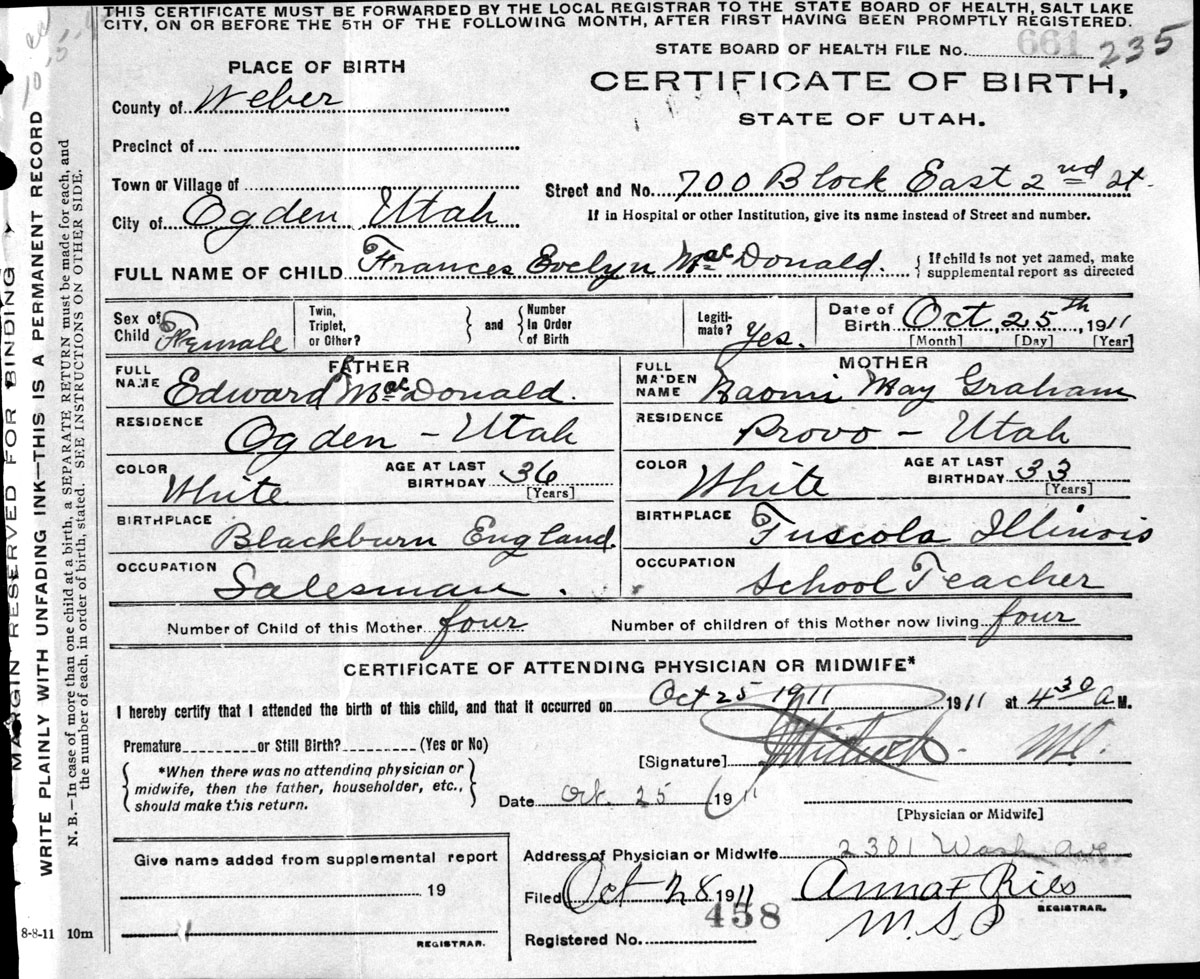 THIS CERTIFICATE MUST BE FORWARDED BY THE LOCAL REGISTRAR TO THE STATE BOARD OF HEALTH, SALT LAKE
CITY, ON OR BEFORE THE 5TH OF THE FOLLOWING MONTH, AFTER FIRST HAVING BEEN PROMPTLY REGISTERED.
STATE BOARD OF HEALTH FILE No. 661 235
PLACE OF BIRTH
CERTIFICATE OF BIRTH,
STATE OF UTAH.
County of Weber
Precinct of
Town or Village of
Street and No. 700 Block East 2nd St.
City of Ogden Utah
If in Hospital or other Institution, give its name instead of Street and number.
FULL NAME OF CHILD Frances Evelyn MacDonald.
If child is not yet named, make
supplemental report as directed
Sex of Child Female
Twin, Triplet, or Other?
and
Number In Order of Birth
Legiti-mate? Yes.
Date of Birth Oct, 25th, 1911
[Month] [Day] [Year]
FATHER
MOTHER
FULL NAME Edward MacDonald.
FULL MAIDEN NAME Naomi May Graham
RESIDENCE Ogden - Utah
RESIDENCE Provo - Utah
COLOR White AGE AT LAST BIRTHDAY 36 [Years]
COLOR White AGE AT LAST BIRTHDAY 33 [Years]
BIRTHPLACE Blackburn England.
BIRTHPLACE Tuscola Illinois
OCCUPATION Salesman.
OCCUPATION School Teacher
Number of Child of this Mother four
Number of children of this Mother now living four
CERTIFICATE OF ATTENDING PHYSICIAN OR MIDWIFE*
I hereby certify that I attended the birth of this child, and that it occurred on Oct 25 1911 1911 at 4 30 A M.
Premature or Still Birth? (Yes or No)
[Signature]
*When there was no attending physician or
midwife, then the father, householder, etc.,
should make this return.
Date Oct. 25 1911
[Physician or Midwife]
Give name added from supplemental report
19
REGISTRAR.
Address of Physician or Midwife 2301 Wash Ave
Filed Oct 28 1911
REGISTRAR.
Registered No. 458
MARGIN RESERVED FOR BINDING
WRITE PLAINLY WITH UNFADING INK—THIS IS A PERMANENT RECORD
N. B.—In case of more than one child at a birth, a SEPARATE RETURN must be made for each, and
the number of each, in order of birth, stated. SEE INSTRUCTIONS ON OTHER SIDE.
8-8-11 10m